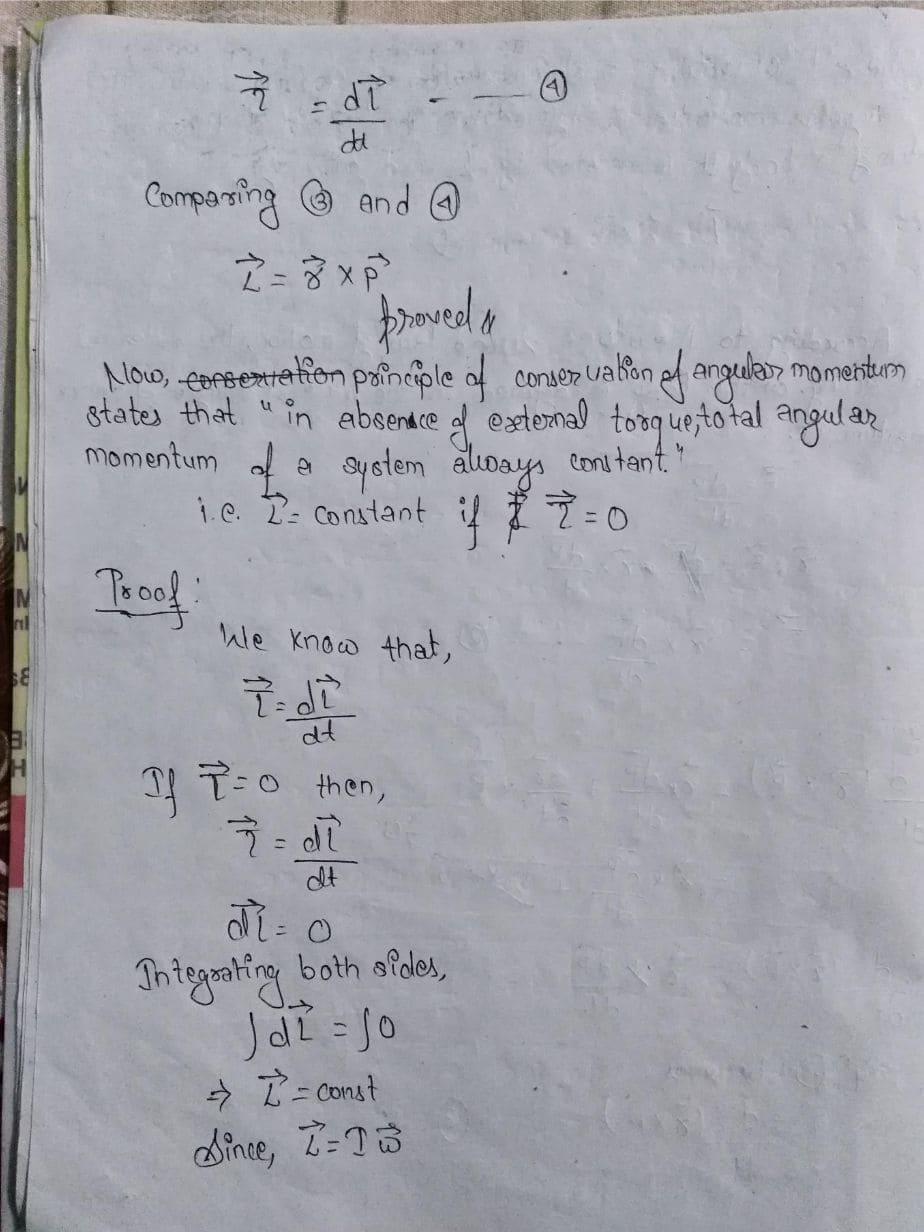 τ⃗ = dL⃗/dt - — ④
Comparing ③ and ④
L⃗ = r⃗ × p⃗
proved
Now, conservation principle of conservation of angular momentum
states that "in absence of external torque, total angular
momentum of a system always constant."
i.e. L⃗ = constant if τ⃗ = 0
Proof:
We know that,
τ⃗ = dL⃗/dt
If τ⃗ = 0 then,
τ⃗ = dL⃗/dt
dL⃗ = 0
Integrating both sides,
∫dL⃗ = ∫0
⇒ L⃗ = const
Since, L⃗ = I ω⃗